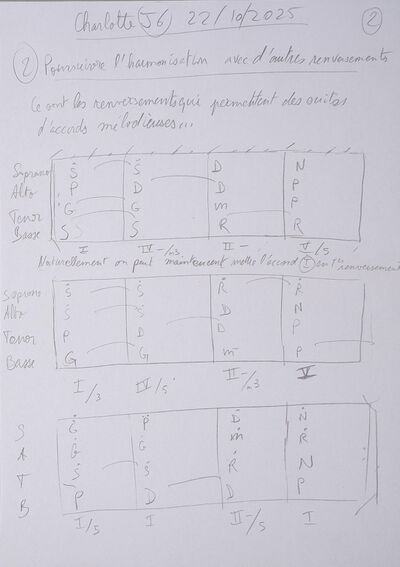 Charlotte (J6) 22/10/2025 (2)
(2) Poursuivre l'harmonisation avec d'autres renversements
Ce sont les renversements qui permettent des suites
d'accords mélodieuses...
Soprano Ṡ Ṡ D N
Alto P D D P
Tenor G G m P
Basse S S R R
I IV-/m3 II- V/5
Naturellement on peut maintenant mettre l'accord (I) en 1er renversement
Soprano Ṡ Ṡ Ṙ Ṙ
Alto Ṡ Ṡ D N
Tenor P D D P
Basse G G m P
I/3 IV/5 II-/m3 V
S Ġ P̈ Ḋ Ṅ
A Ġ Ġ ṁ Ṙ
T Ṡ Ṡ Ṙ N
B P D D P
I/5 I II-/5 I